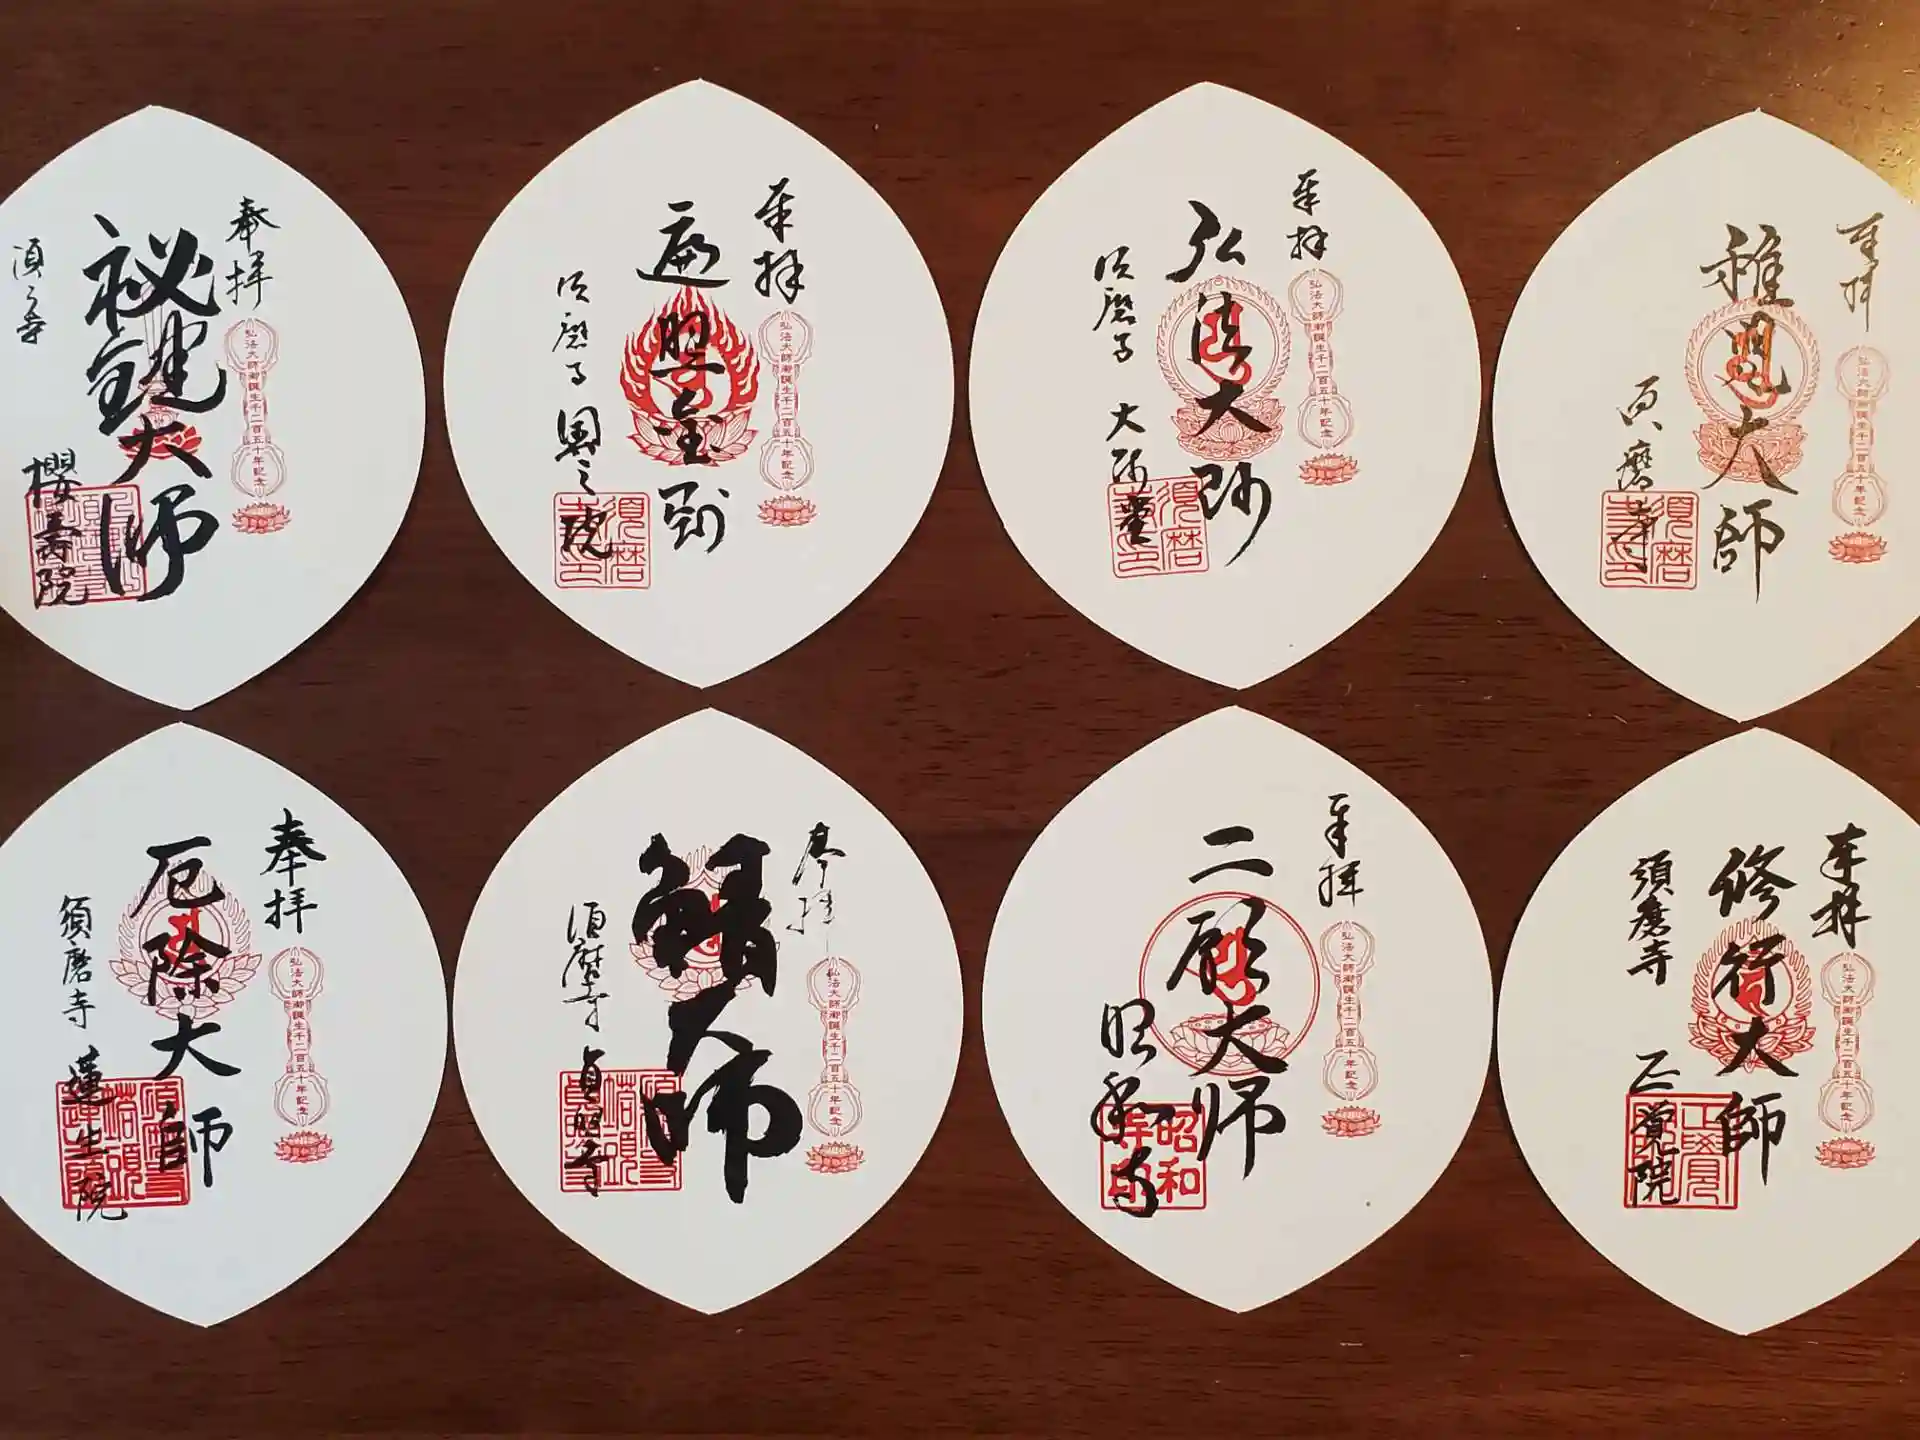 奉拝
弘法大師御誕生千二百五十年記念
秘鍵大師
須ま寺
櫻壽院
奉拝
弘法大師御誕生千二百五十年記念
遍照金剛
須磨寺
奥之院
須磨
奉拝
弘法大師御誕生千二百五十年記念
弘法大師
須磨寺
大師堂
須磨
奉拝
弘法大師御誕生千二百五十年記念
稚児大師
須磨寺
須磨
奉拝
弘法大師御誕生千二百五十年記念
厄除大師
須磨寺
蓮生院
塔頭
奉拝
弘法大師御誕生千二百五十年記念
鯖大師
須磨寺
貞照寺
塔頭
奉拝
弘法大師御誕生千二百五十年記念
二願大师
昭和寺
昭和
寺印
奉拝
弘法大師御誕生千二百五十年記念
修行大師
須磨寺
正覚院
正覺